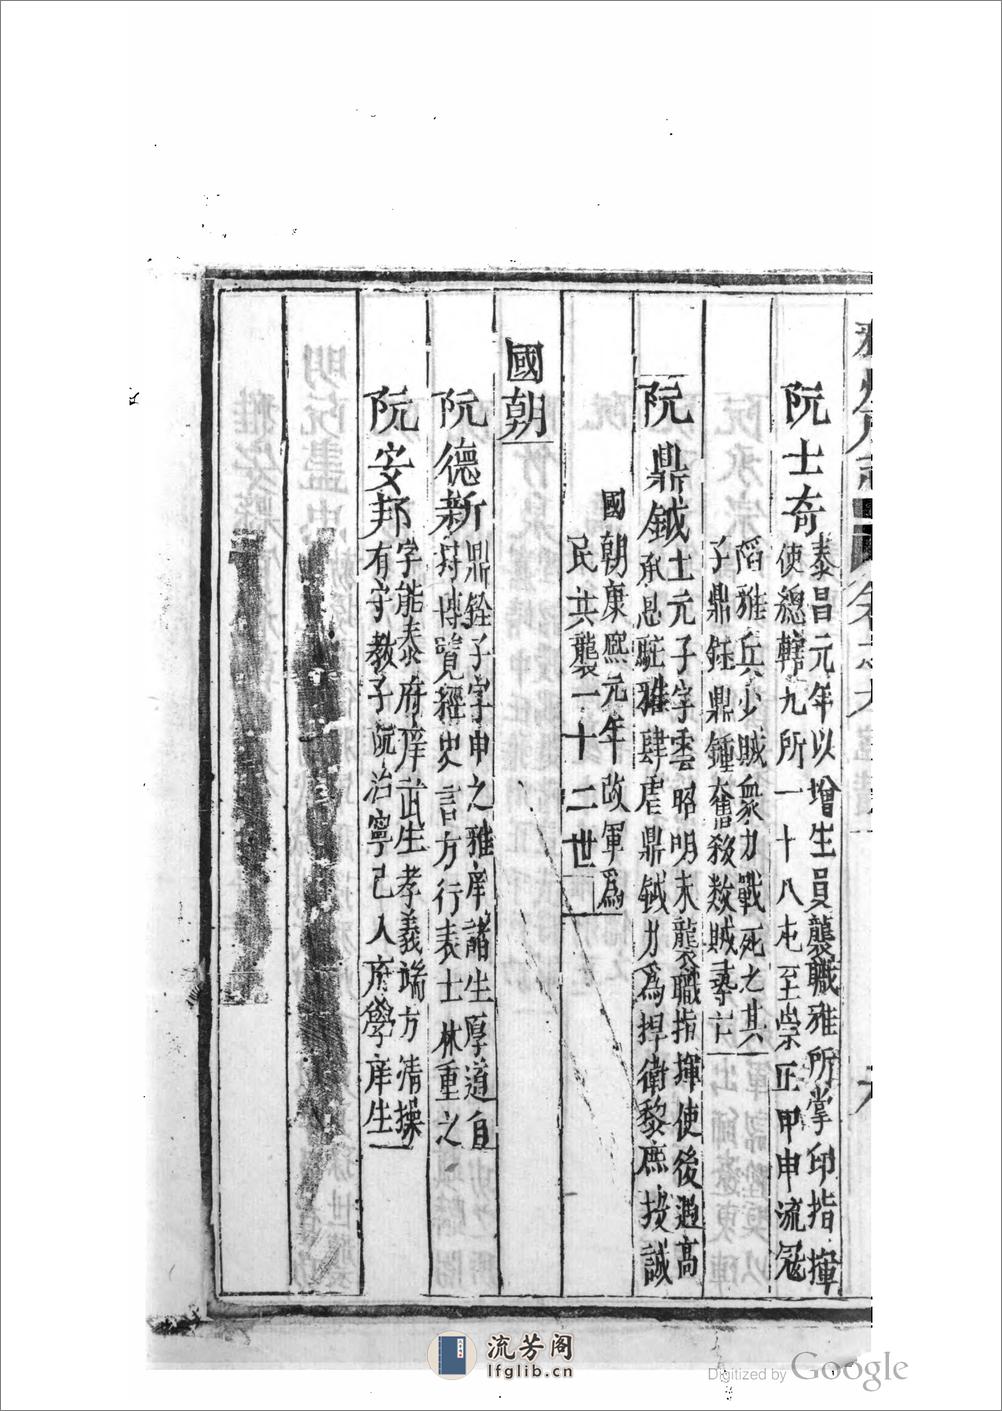 阮士奇
泰昌元年以增生員襲職雅所掌印指揮
使總轄九所一十八屯至崇正甲申流冦
陷雅兵少賊衆力戰死之其
子鼎鈺鼎鍾奮殺数賊尋亡
阮鼎鉞
士元子字雲昭明末襲職指揮使後遇高
承恩駐雅肆虐鼎鉞力為捍衛黎庶投誠
國朝康熙元年改軍爲
民共襲一十二世
國朝
阮德新
鼎銓子字申之雅庠諸生厚道自
持博覧經史言方行表士林重之
阮安邦
字能泰府庠武生孝義端方清操
有守教子阮治寧己入府學庠生
流芳阁
lfglib.cn
Digitized by Google